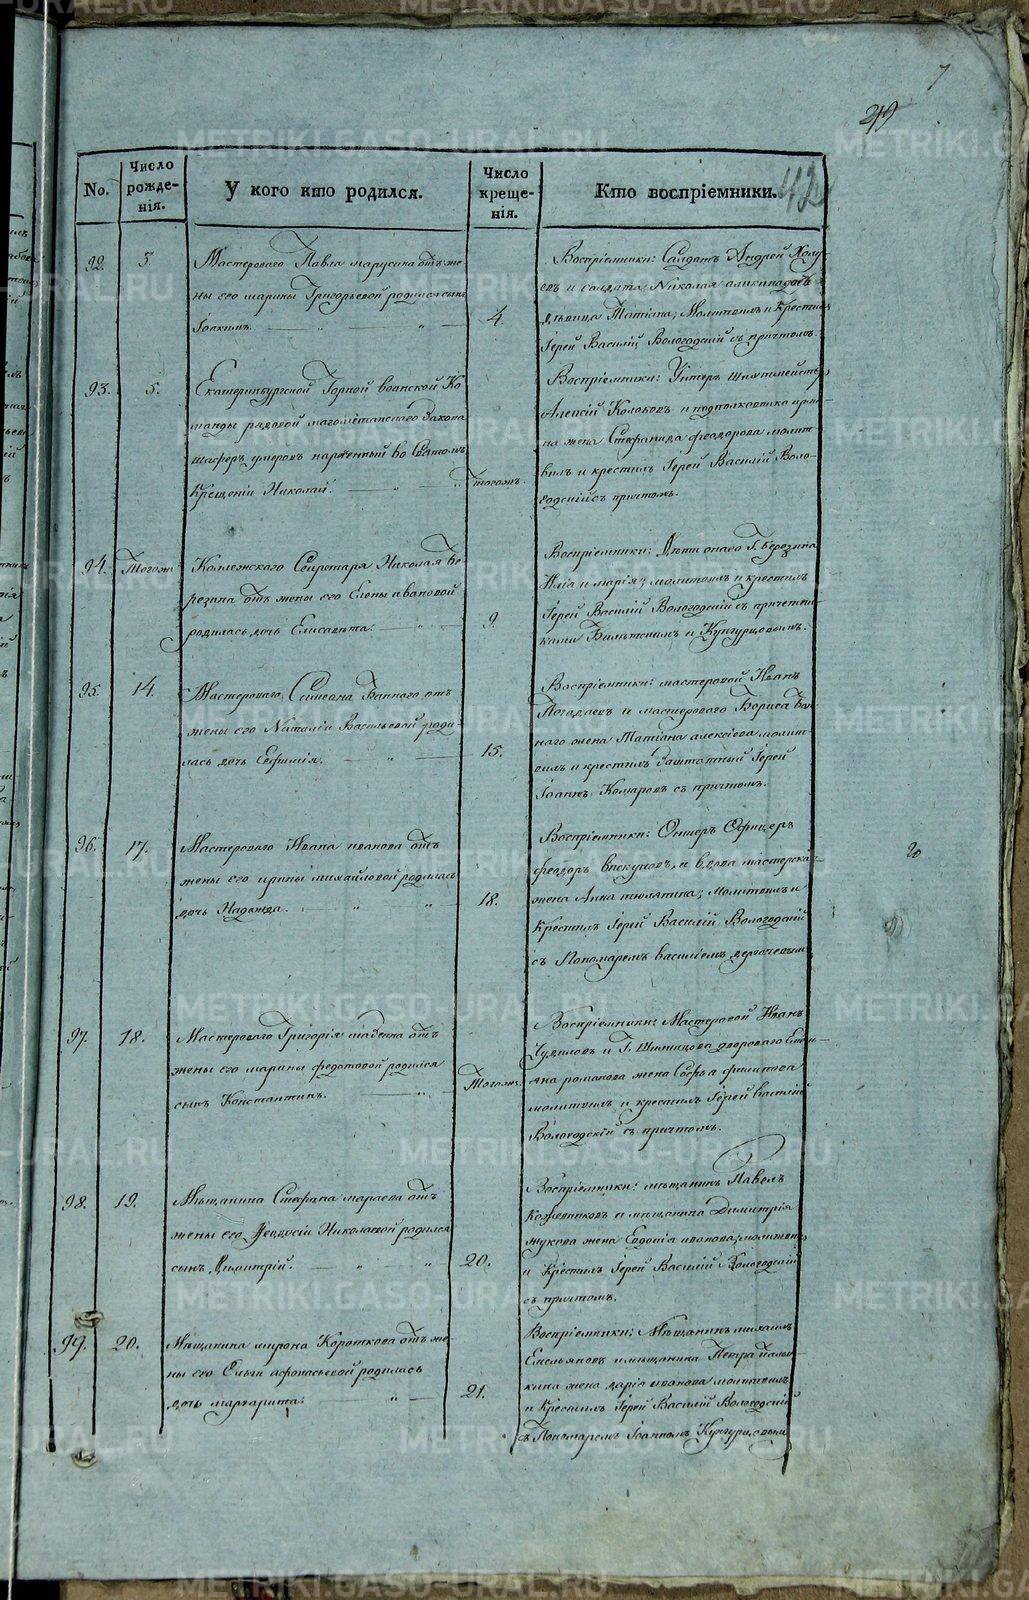 7
219
42
No.
Число рожде-нія.
У кого кто родился.
Число креще-нія.
Кто воспріемники.
92.
3.
Мастероваго Павла марусина отъ же-
ны его марины Григорьевой родился сынъ
Іоакимъ.
4.
Воспріемники: Салдатъ Андрей
и солдата Николая
дѣвица Татіана; Молитвилъ и Крестилъ
Іерей Василій Вологодскій съ причтомъ.
93.
5.
Екатеринбургской Горной воинской Ко-
манды рядовой магометанского закона
нареченный во Святомъ
Крещеніи Николай.
тогожъ.
Воспріемники: Унтеръ
Алексій Колобовъ и подполковника
на жена Стефанида феодорова молит-
вилъ и крестилъ Іерей Василій Воло-
годскій съ причтомъ.
94.
Тогожъ
Коллежскаго Секретаря Николая Бе-
резина отъ жены его Елены ивановой
родилась дочь Елисавета.
9.
Воспріемники: Дѣти онаго Г. Березина
Илія и марія; молитвилъ и крестилъ
Іерей Василій Вологодскій съ причетни-
ками и Кунгурцовымъ.
95.
14.
Мастероваго Симеона Баннаго отъ
жены его Наталіи Васильевой роди-
лась дочь Евфимія.
15.
Воспріемники: мастеровой Иванъ
Погадаевъ и мастероваго Бориса Бан-
наго жена Татіана алексіева молит-
вилъ и крестилъ Заштатный Іерей
Іоаннъ Комаровъ съ причтомъ.
96.
17.
Мастероваго Ивана иванова отъ
жены его ирины михайловой родилась
дочь Надежда.
18.
Воспріемники: Офицеръ
феодоръ вискуновъ, и вдова мастерская
жена Анна тюлянина; молитвилъ и
Крестилъ Іерей Василій Вологодскій
съ Пономаремъ василіемъ дерговевымъ
97.
18.
Мастероваго Григорія отъ
жены его марины федотовой родился
сынъ Константинъ.
Тогожъ.
Воспріемники: Мастеровой Иванъ
Чудиловъ и Г. двороваго
романова жена Софья филипова
молитвилъ и крестилъ Іерей василій
Вологодскій съ причтомъ.
98.
19.
Мѣщанина Стефана мараева отъ
жены его Феодосіи Николаевой родился
сынъ Димитрій.
20.
Воспріемники: мѣщанинъ Павелъ
Кожевниковъ и мѣщанина Димитрія
жукова жена Евдокія иванова; молитвилъ
и Крестилъ Іерей Василій Вологодскій
съ причтомъ.
99.
20.
Мѣщанина мирона Короткова отъ же-
ны его Ельги афонасьевой родилась
дочь маргарита.
21.
Воспріемники: Мѣщанинъ михаилъ
Емельяновъ и мѣщанина Петра
кина жена дарія иванова молитвилъ
и Крестилъ Іерей Василій Вологодскій
съ Пономаремъ Іоанномъ Кунгурцовымъ
METRIKI.GASO-URAL.RU